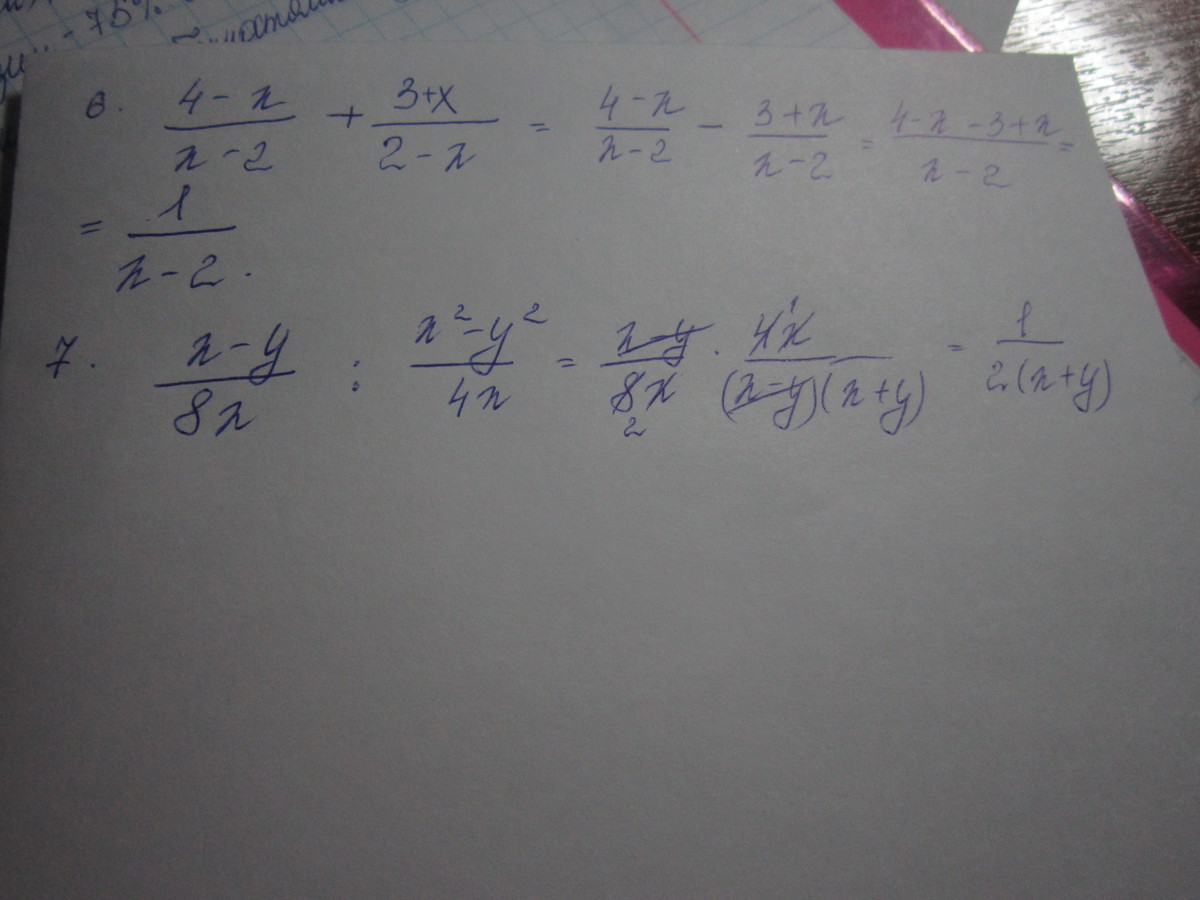 - 75%
6. (4-x)/(x-2) + (3+x)/(2-x) = (4-x)/(x-2) - (3+x)/(x-2) = (4-x-3+x)/(x-2) =
= 1/(x-2).
7. (x-y)/(8x) : (x²-y²)/(4x) = (x-y)/(8x) 2 · (4x)/((x-y)(x+y)) 1 = 1/(2(x+y))